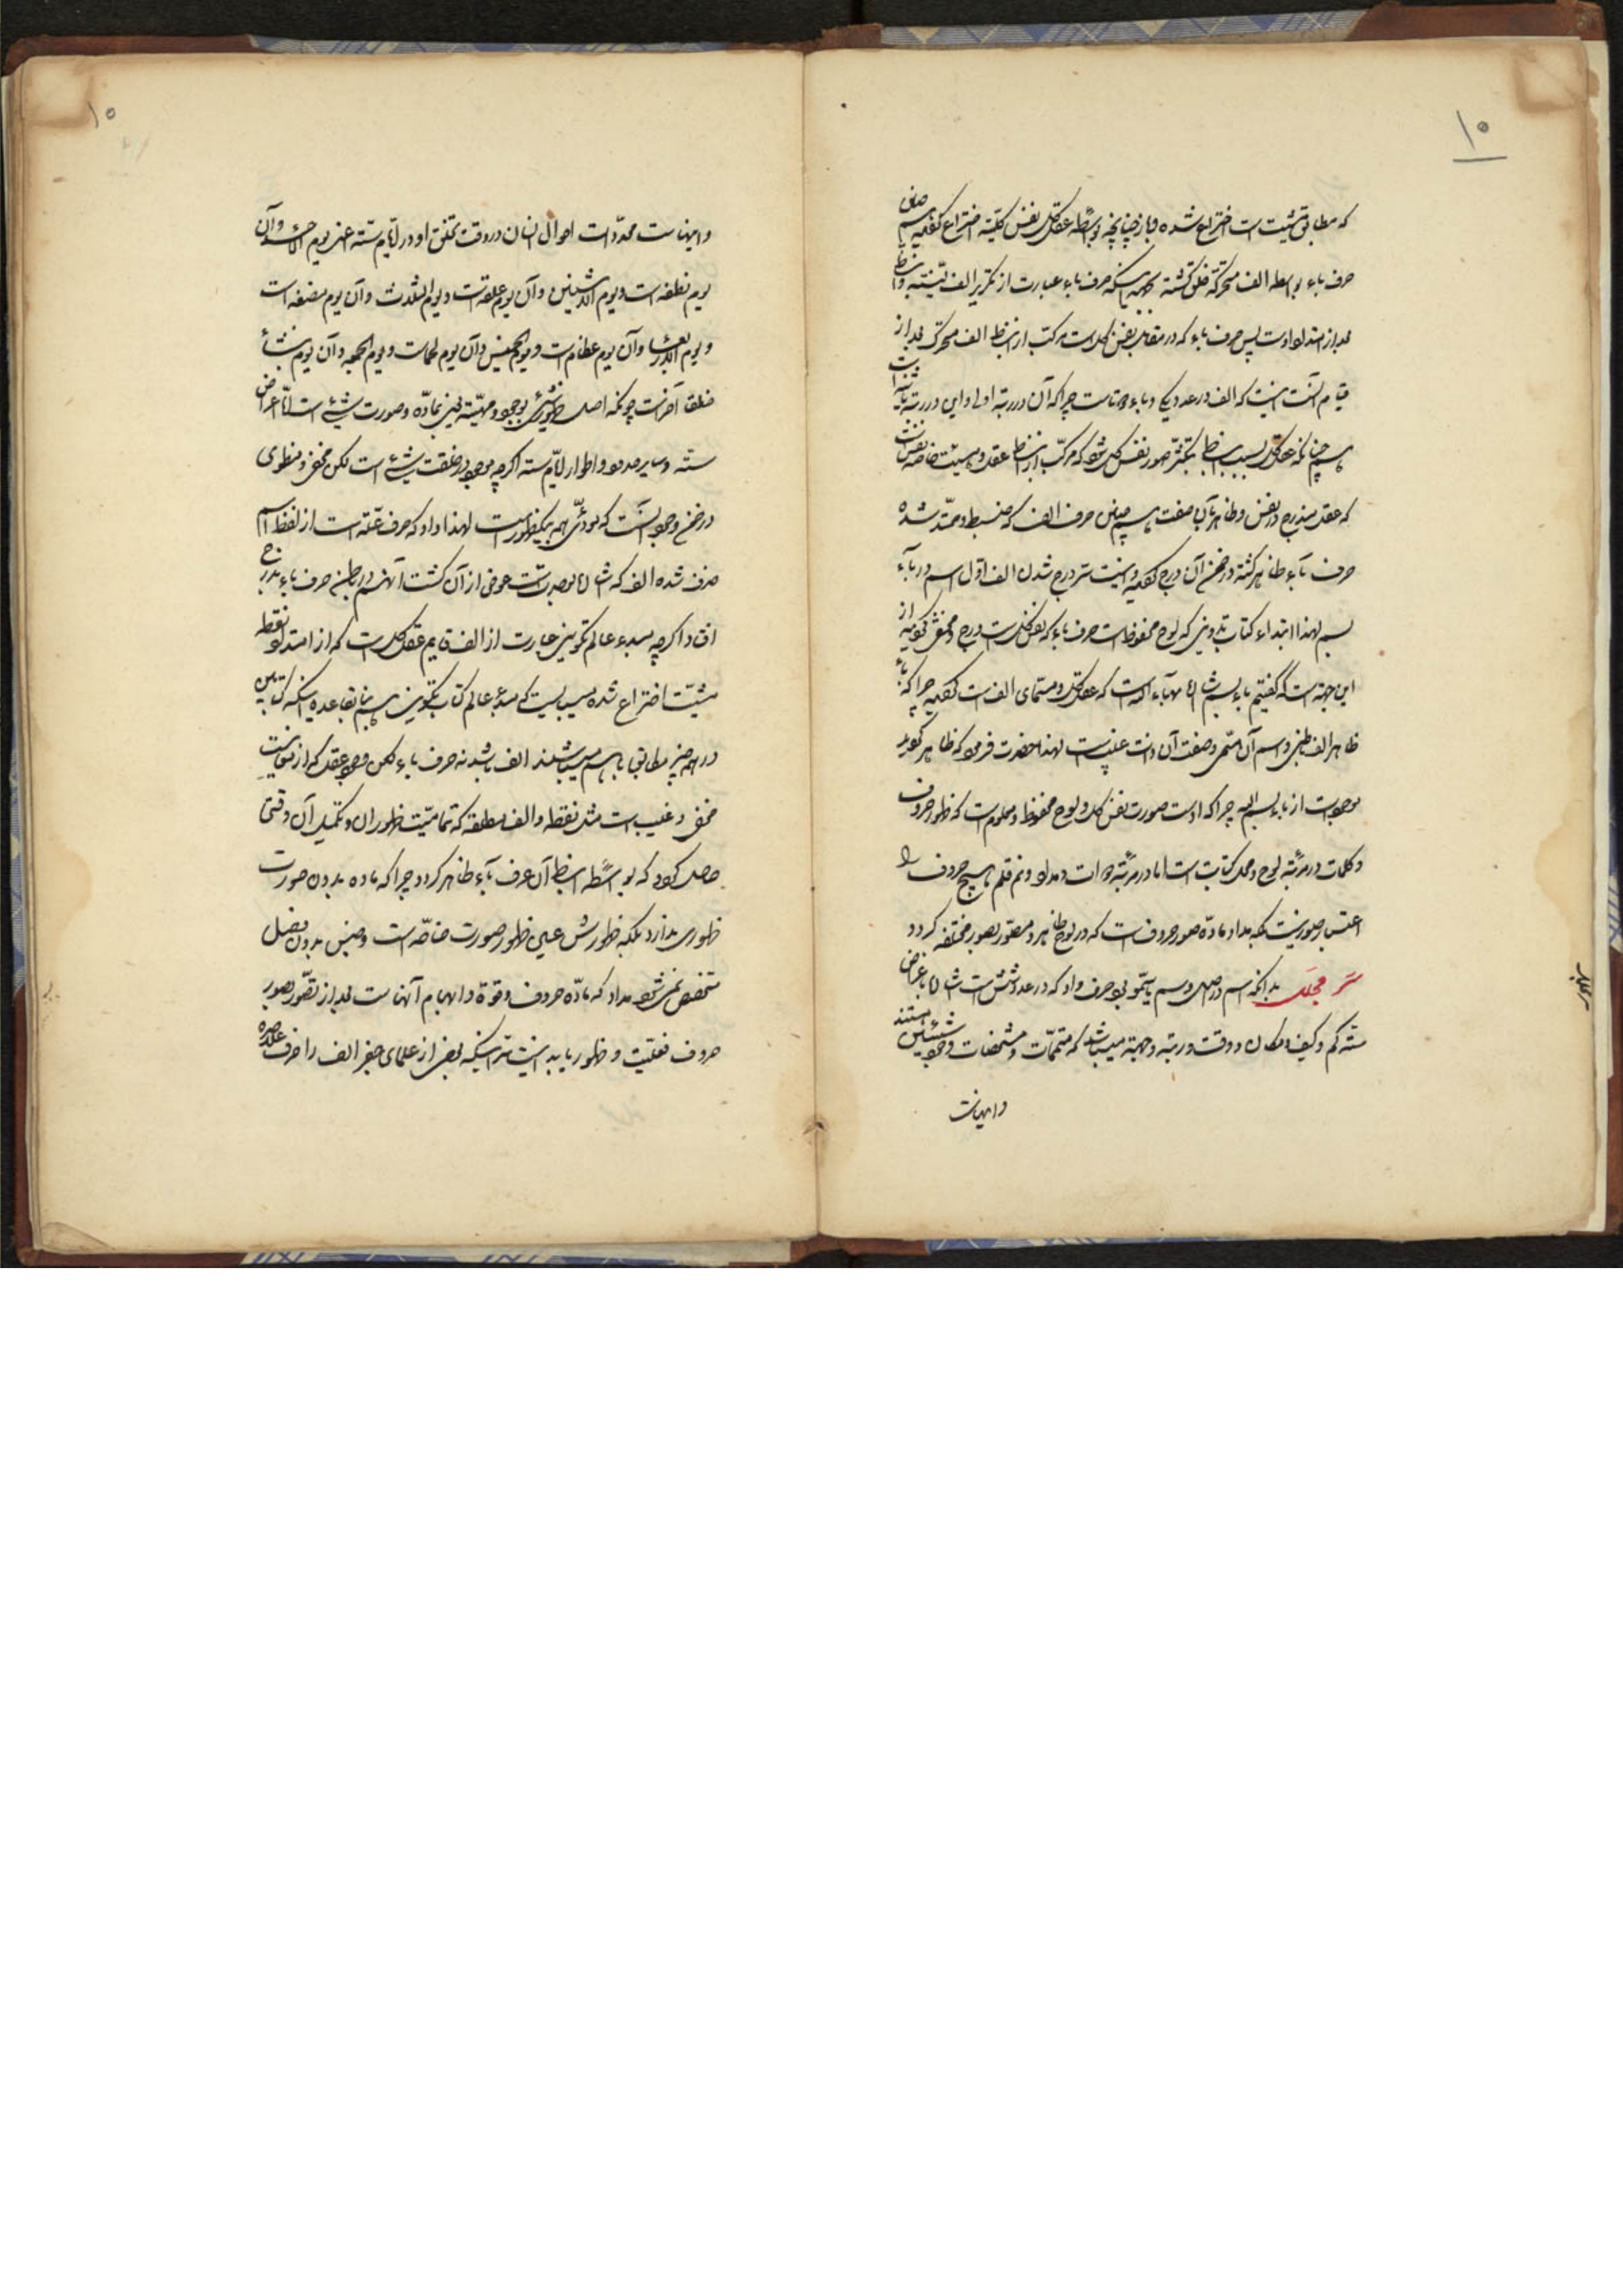 ۱۰
که مطابق مشیت است اختراع شده و باز چنانچه بواسطه عقل کل نفس کلیه اختراع گردید همین
حرف باء بواسطه الف متحرکه خلق گشته حرف باء عبارت از تکریر الف لینیه و انبساط
بعد از امتداد اوست پس حرف باء که در مقابل نفس کل است مرکب از انبساط الف متحرک بعد از
قیام آنست اینست که الف در عدد یکی و باء دوتاست چرا که آن در رتبه اولی و این در رتبه ثانیه است
چنانکه عقل کل بسبب انبساط بتکثر صور نفس کل شود که مرکب از انبساط عقل و هیئت خاصه نفس است
که عقل مندرج در نفس و ظاهر بآن صفت همچنین حرف الف که منبسط و ممتد شده
حرف باء ظاهر گشته و در ضمن آن درج گردید و اینست سر درج شدن الف اول اسم در باء
بسم لهذا ابتداء کتاب تدوینی که لوح محفوظ است حرف باء که نفس کل است درج و مخفی گردید از
این جهة است که گفتیم باء بسم الله بهاء الله است که عقل کل و مسمای الف است گردید چرا که باء
ظاهر الف باطنی و اسم آن مسمی و صفت آن ذات غیب است لهذا حضرت فرمود که ظاهر گردید
موجودات از باء بسم الله چرا که اوست صورت نفس کل و لوح محفوظ و معلوم است که ظهور حروف
و کلمات در مرتبه لوح و محل کتابت است اما در مرتبه دوات و مداد و فم قلم هیچ حروف را
اعتبار صوری نیست بلکه مداد ماده صور حروف است که در لوح ظاهر و مصور بصور مختلفه گردد
سر مجلل بدانکه اسم در اصل وسم یا سمو بود حرف واو که در عدد شش است اشاره باعراض
سته کم و کیف و مکان و وقت و رتبه و جهة میباشد که متممات و مشخصات وجود شیئ هستند
و اینهاست
۱۰
و اینهاست محددات احوال انسان در وقت تخلق او در ایام سته اعنی یوم الاحد و آن
یوم نطفه است و یوم الاثنین و آن یوم علقه است و یوم الثلاث و آن یوم مضغه است
و یوم الاربعا و آن یوم عظام است و یوم الخمیس و آن یوم لحم است و یوم الجمعه و آن یوم انشأ
خلقا آخر است چونکه اصل ظهور شیئ بوجود و مهیته یعنی بماده و صورت شیئ است اما اعراض
سته و سایر حدود و اطوار ایام سته اگرچه موجود در خلقت شیئ است لکن مخفی و منطوی
در ضمن وجود اینست که مودی همه بیکظهور است لهذا واو که حرف عله است از لفظ اسم
حذف شده الف که اشاره بوحدتست عوض از آن گشت آنهم در باطن حرف باء بدرج
افتاد اگرچه مبدء عالم تکوینی عبارت از الف قائم عقل کل است که از امتداد نقطه
مشیت اختراع شده میبایست که مبدء عالم کتاب تکوینی هم بنا بقاعده اینکه کتابین
در همه چیز مطابق با هم میباشند الف باشد نه حرف باء لکن وجود عقل که از نهایت
مخفی و غیب است مثل نقطه و الف مطلقه که تمامیت ظهور آن و تکمیل آن وقتی
حاصل گردد که بواسطه انبساط آن حرف باء ظاهر گردد چرا که ماده بدون صورت
ظهوری ندارد بلکه ظهورش عین ظهور صورت خاصه است و جنس بدون فصل
متحصص نمی شود مداد که ماده حروف و قوة و ابهام آنهاست بعد از تصور بصور
حروف فعلیت و ظهور یابد اینست سر اینکه بعضی از علمای جفر الف را حرف علیحده